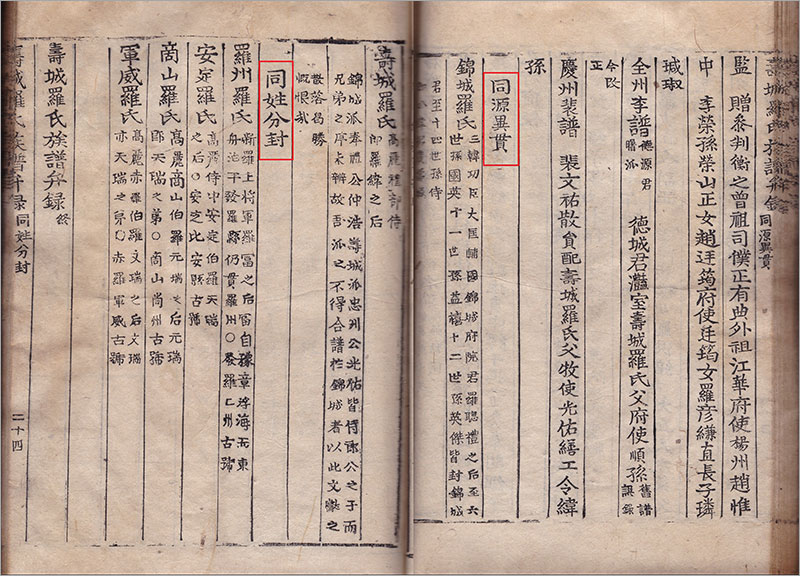 壽城羅氏族譜弁錄 同源異貫
監 贈參判衡之曾祖司僕正有典外祖江華府使楊州趙惟
中 李榮孫榮山正女趙廷筠府使廷筠女羅彦縑直長子璘
瑊琡
全州李譜 德源君 派 德城君灩室壽城羅氏父府使順孫 舊譜誤錄
今改正
慶州裴譜 裴文祐散貟配壽城羅氏父牧使光佑繕工令緯
孫
同源異貫
錦城羅氏 三韓功臣大匡輔國錦城府院君羅聰禮之后至六
世孫國英十一世孫益禧十二世孫英傑皆封錦城
君至十四世孫侍
壽城羅氏 高麗禮部侍
郎羅緯之后
錦城派奉禮公仲浩壽城派忠州公光佑皆侍郎公之子而
兄弟之序未辨故吾派之不得合譜於錦城者以此文獻之
散落曷勝
慨恨哉
同姓分封
羅州羅氏 新羅上將軍羅富之后富自豫章浮海而東
舟泊于發羅縣仍貫羅州○發羅乚州古號
安定羅氏 高麗侍中安定伯羅天瑞
之后○安定比安縣古號
商山羅氏 高麗商山伯羅元瑞之后元瑞
卽天瑞之第○商山尙州古號
軍威羅氏 高麗赤羅伯羅文瑞之后文瑞
亦天瑞之第○赤羅軍威古號
壽城羅氏族譜弁録 終
壽城羅氏族譜弁録 同姓分封
二十四